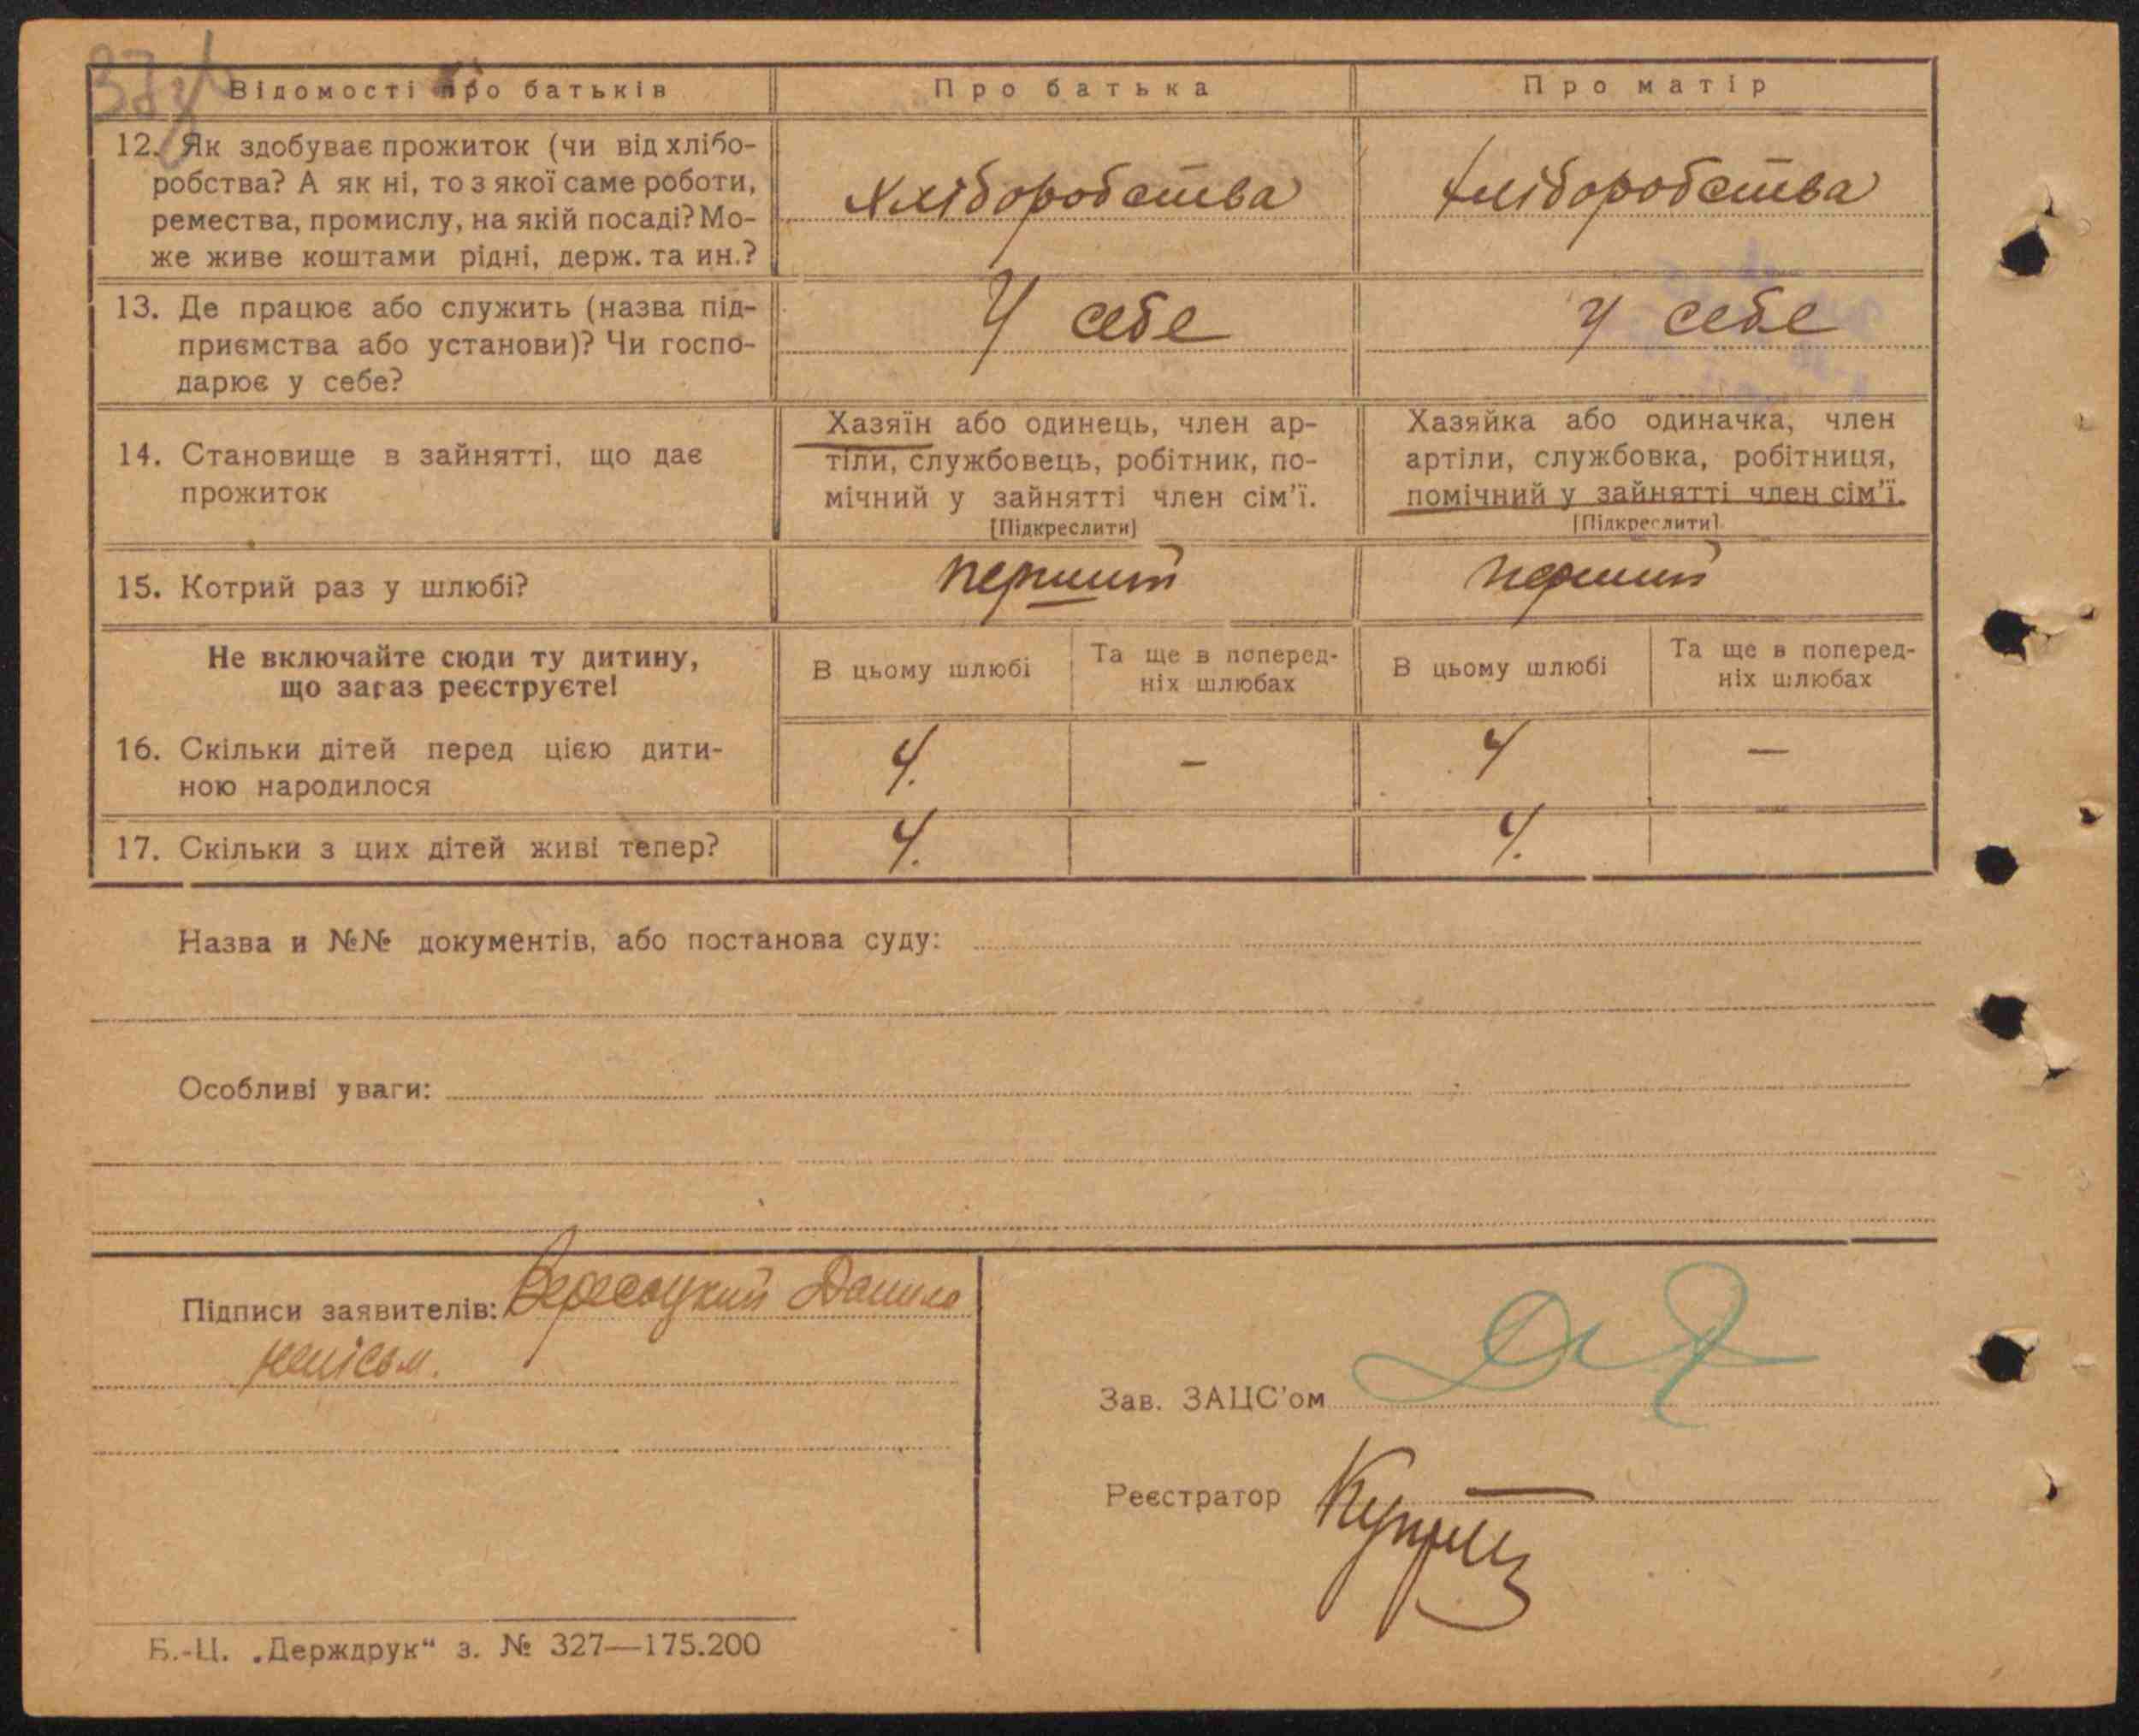 Відомості про батьків Про батька Про матір
12. Як здобуває прожиток (чи від хлібо-
робства? А як ні, то з якої саме роботи,
ремества, промислу, на якій посаді? Мо-
же живе коштами рідні, держ. та ин.?
Хліборобства Хліборобства
13. Де працює або служить (назва під-
приємства або установи)? Чи госпо-
дарює у себе?
У себе У себе
14. Становище в зайнятті, що дає
прожиток
Хазяїн або одинець, член ар-
тіли, службовець, робітник, по-
мічний у зайнятті член сім'ї.
[Підкреслити]
Хазяйка або одиначка, член
артіли, службовка, робітниця,
помічний у зайнятті член сім'ї.
[Підкреслити]
15. Котрий раз у шлюбі? перший перший
Не включайте сюди ту дитину,
що зараз реєструєте!
В цьому шлюбі
Та ще в поперед-
ніх шлюбах
В цьому шлюбі
Та ще в поперед-
ніх шлюбах
16. Скільки дітей перед цією дити-
ною народилося
4. – 4 –
17. Скільки з цих дітей живі тепер? 4. 4.
Назва и №№ документів, або постанова суду:
Особливі уваги:
Підписи заявителів: Вересоцкий Данило
неписьм.
Зав. ЗАЦС'ом
Реєстратор
Б.-Ц. „Держдрук“ з. № 327—175.200